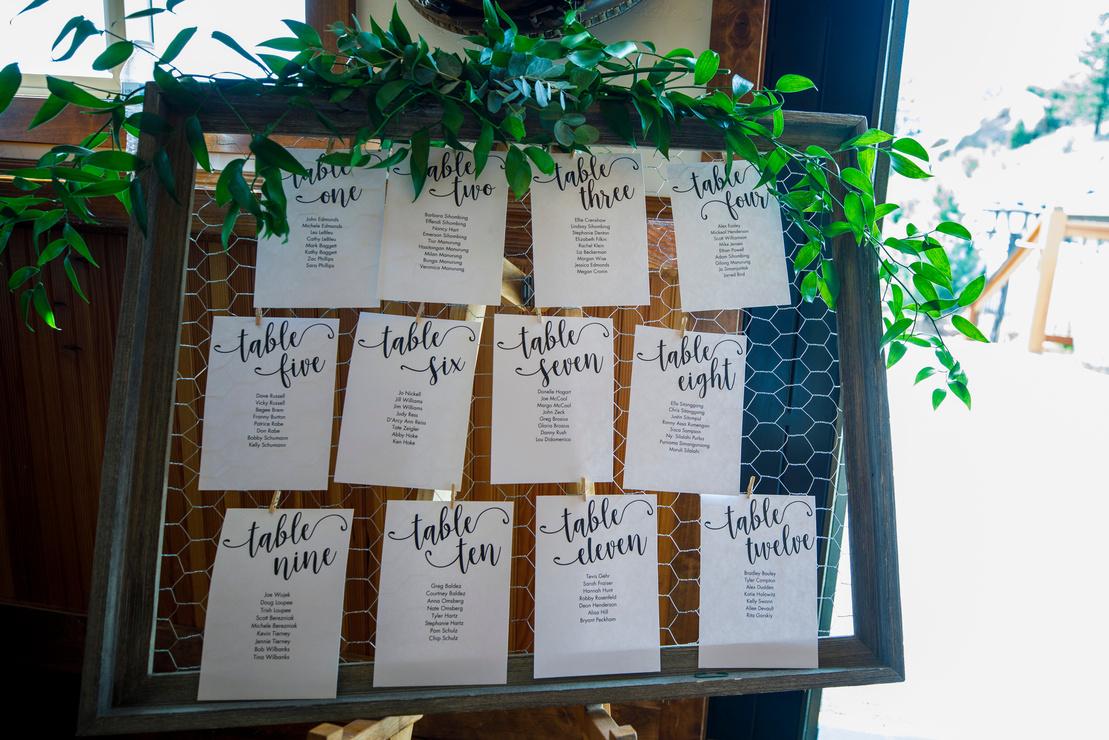 table
one
John Edmonds
Michele Edmonds
Les Lebleu
Cathy Lebleu
Mark Baggett
Kathy Baggett
Zac Phillips
Sara Phillips
table
two
Barbara Sihombing
Effendi Sihombing
Nancy Hart
Emerson Sihombing
Tior Manurung
Hasiholan Manurung
Milan Manurung
Bunga Manurung
Veronica Manurung
table
three
Ellie Crenshaw
Lindsay Sihombing
Stephanie Denton
Elizabeth Fifkin
Rachel Klein
Liz Beckerman
Morgan Wise
Jessica Edmonds
Megan Cronin
table
four
Alex Easley
Mickeal Henderson
Scott Williamson
Mike Jensen
Ethan Powell
Adam Sihombing
Gilang Manurung
Jo Simanjuntak
Jarred Bird
table
five
Dave Russell
Vicky Russell
Begee Brem
Franny Burton
Patrice Rabe
Don Rabe
Bobby Schumann
Kelly Schumann
table
six
Jo Nickell
Jill Williams
Jim Williams
Judy Reiss
D'Arcy Ann Reiss
Tate Zeigler
Abby Hake
Ken Hake
table
seven
Danelle Hogart
Joe McCool
Margo McCool
John Zeck
Greg Brosius
Gloria Brosius
Danny Rush
Lou Didomenico
table
eight
Ella Sitanggang
Chris Sitanggang
Justin Sitompul
Ronny Assa Rumengan
Sisca Sampson
Ny. Silalahi Purba
Purnama Simangunsong
Maruli Silalahi
table
nine
Joe Wojek
Doug Loupee
Trish Loupee
Scott Berezniak
Michele Berezniak
Kevin Tierney
Jennie Tierney
Bob Wilbanks
Tina Wilbanks
table
ten
Greg Baldez
Courtney Baldez
Anna Ornsberg
Nate Ornsberg
Tyler Hartz
Stephanie Hartz
Pam Schulz
Chip Schulz
table
eleven
Tavis Gehr
Sarah Fraiser
Hannah Hunt
Robby Rosenfeld
Dean Henderson
Alisa Hill
Bryant Peckham
table
twelve
Bradley Bauley
Tyler Compton
Alex Dudden
Katie Holowitz
Kelly Swann
Ailee Devault
Rita Gorskiy